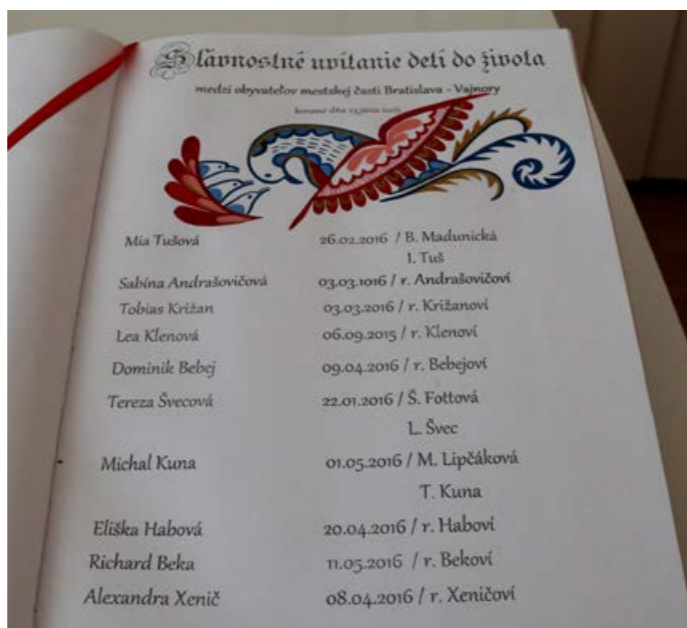 Slávnostné uvítanie detí do života
medzi obyvateľov mestskej časti Bratislava - Vajnory
konané dňa
Mia Tušová 26.02.2016 / B. Madunická
I. Tuš
Sabína Andrašovičová 03.03.1016 / r. Andrašovičoví
Tobias Križan 03.03.2016 / r. Križanoví
Lea Klenová 06.09.2015 / r. Klenoví
Dominik Bebej 09.04.2016 / r. Bebejoví
Tereza Švecová 22.01.2016 / Š. Fottová
L. Švec
Michal Kuna 01.05.2016 / M. Lipčáková
T. Kuna
Eliška Habová 20.04.2016 / r. Haboví
Richard Beka 11.05.2016 / r. Bekoví
Alexandra Xenič 08.04.2016 / r. Xeničoví